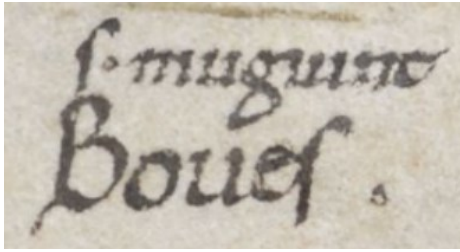 s. muguint
Boues.